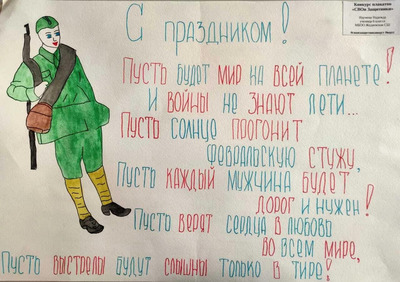 Конкурс плакатов
«СВОи Защитники»
С праздником!
Пусть будет мир на всей планете!
И войны не знают дети...
Пусть солнце прогонит
февральскую стужу,
Пусть каждый мужчина будет
дорог и нужен!
Пусть верят сердца в любовь
во всем мире,
Пусть выстрелы будут слышны только в тире!